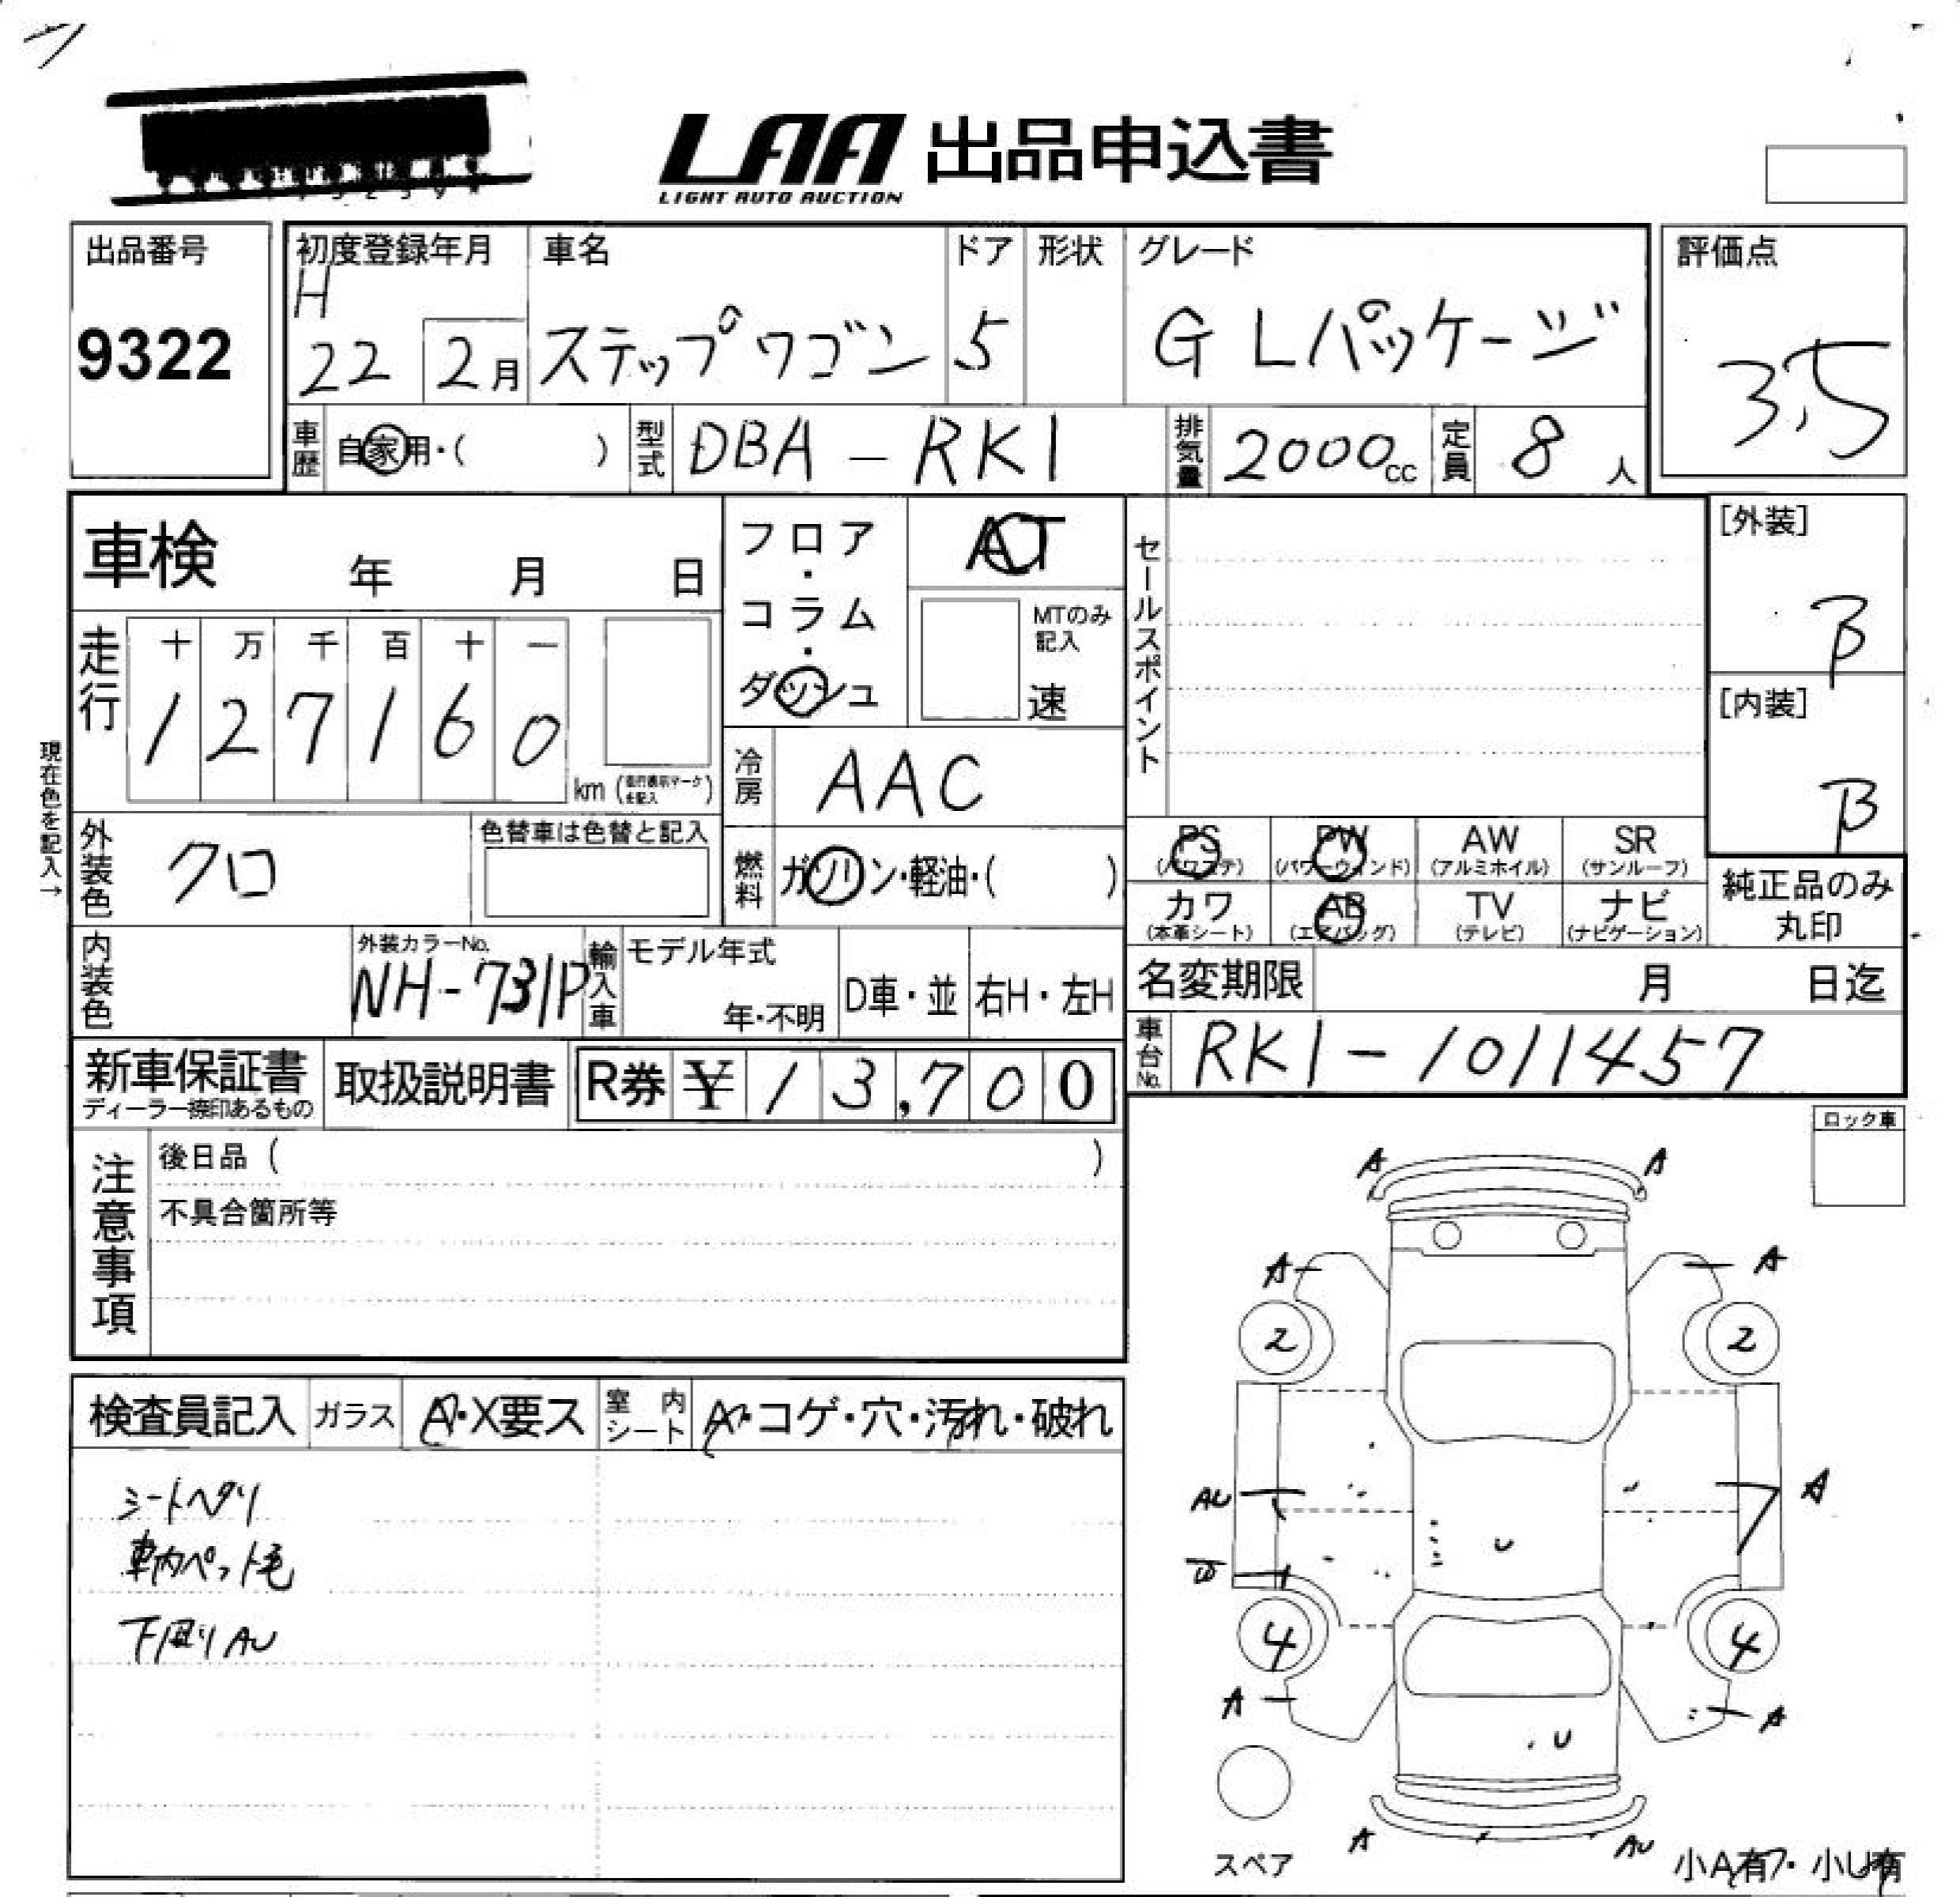 LAA 出品申込書
LIGHT AUTO AUCTION
出品番号
9322
初度登録年月
H
22 2月
車名
ステップワゴン
ドア
5
形状
グレード
G Lパッケージ
評価点
3.5
車歴 自家用・( )
型式 DBA-RK1
排気量 2000cc
定員 8人
車検 年 月 日
フロア・コラム・ダッシュ
AT
MTのみ記入
速
セールスポイント
[外装]
B
[内装]
B
走行
十 万 千 百 十 一
1 2 7 1 6 0
km (走行表示マークを記入)
冷房 AAC
現在色を記入→
外装色 クロ
色替車は色替と記入
燃料 ガソリン・軽油・( )
PS (パワステ)
PW (パワーウィンド)
AW (アルミホイル)
SR (サンルーフ)
カワ (本革シート)
AB (エアバッグ)
TV (テレビ)
ナビ (ナビゲーション)
純正品のみ丸印
内装色
外装カラーNo.
NH-731P
輸入車
モデル年式
年・不明
D車・並
右H・左H
名変期限 月 日迄
車台No. RK1-1011457
新車保証書
ディーラー捺印あるもの
取扱説明書
R券 ¥ 13,700
注意事項
後日品 ( )
不具合箇所等
ロック車
検査員記入
ガラス A・X要ス
室内シート A・コゲ・穴・汚れ・破れ
シートヘタリ
車内ペット毛
下廻りAU
A A
A A
2 2
AU A
U
4 4
A A
U
A AU
スペア
小A有・小U有